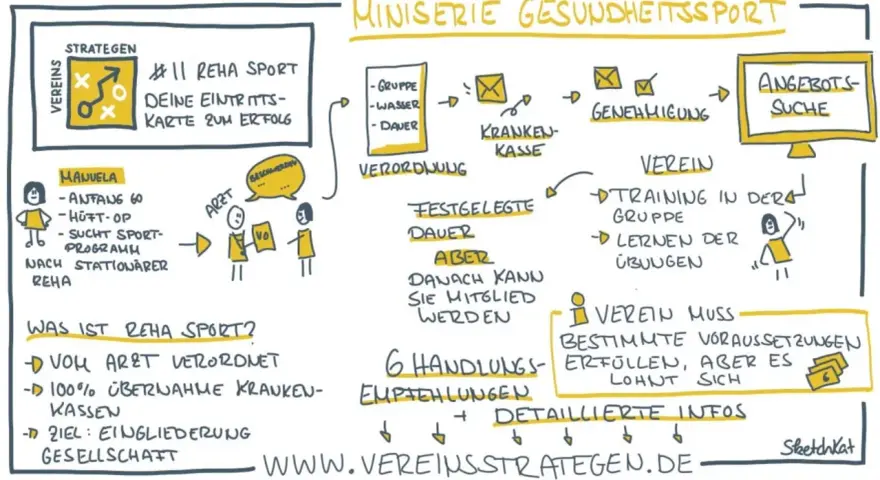 MINISERIE GESUNDHEITSSPORT
VEREINS
STRATEGEN
#11 REHA SPORT
DEINE EINTRITTS-
KARTE ZUM ERFOLG
MANUELA
- ANFANG 60
- HÜFT-OP
- SUCHT SPORT-
PROGRAMM
NACH STATIONÄRER
REHA
ARZT
BESCHWERDEN
...
...
VO
- GRUPPE
- WASSER
- DAUER
VERORDNUNG
KRANKEN-
KASSE
GENEHMIGUNG
ANGEBOTS-
SUCHE
VEREIN
TRAINING IN DER
GRUPPE
LERNEN DER
ÜBUNGEN
FESTGELEGTE
DAUER
ABER
DANACH KANN
SIE MITGLIED
WERDEN
WAS IST REHA SPORT?
VOM ARZT VERORDNET
100% ÜBERNAHME KRANKEN-
KASSEN
ZIEL: EINGLIEDERUNG
GESELLSCHAFT
i VEREIN MUSS
BESTIMMTE VORAUSSETZUNGEN
ERFÜLLEN, ABER ES
LOHNT SICH
€
6 HANDLUNGS-
EMPFEHLUNGEN
+ DETAILLIERTE INFOS
WWW.VEREINSSTRATEGEN.DE
SketchKat